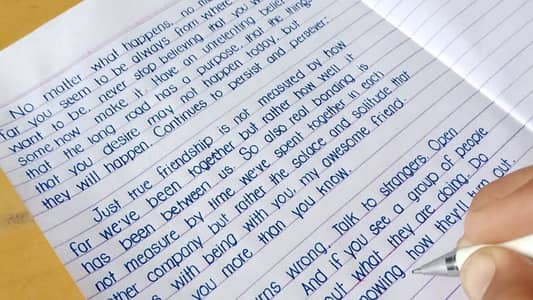 No matter what happens, no
far you seem to be always from where
want to be, never stop believing that you
some how make it. Have an unrelenting belief
that the long road has a purpose, that the things
that you desire may not happen today, but
they will happen. Continues to persist and persever.
Just true friendship is not measured by how
far we've been together but rather how well it
has been between us. So also real bonding is
not measure by time we've spent together in each
other company but rather the solace and solitude that
with being with you, my awesome friend.
you more than you know.
wrong. Talk to strangers. Open
And if you see a group of people
out what they are doing. Do
how they'll turn out.